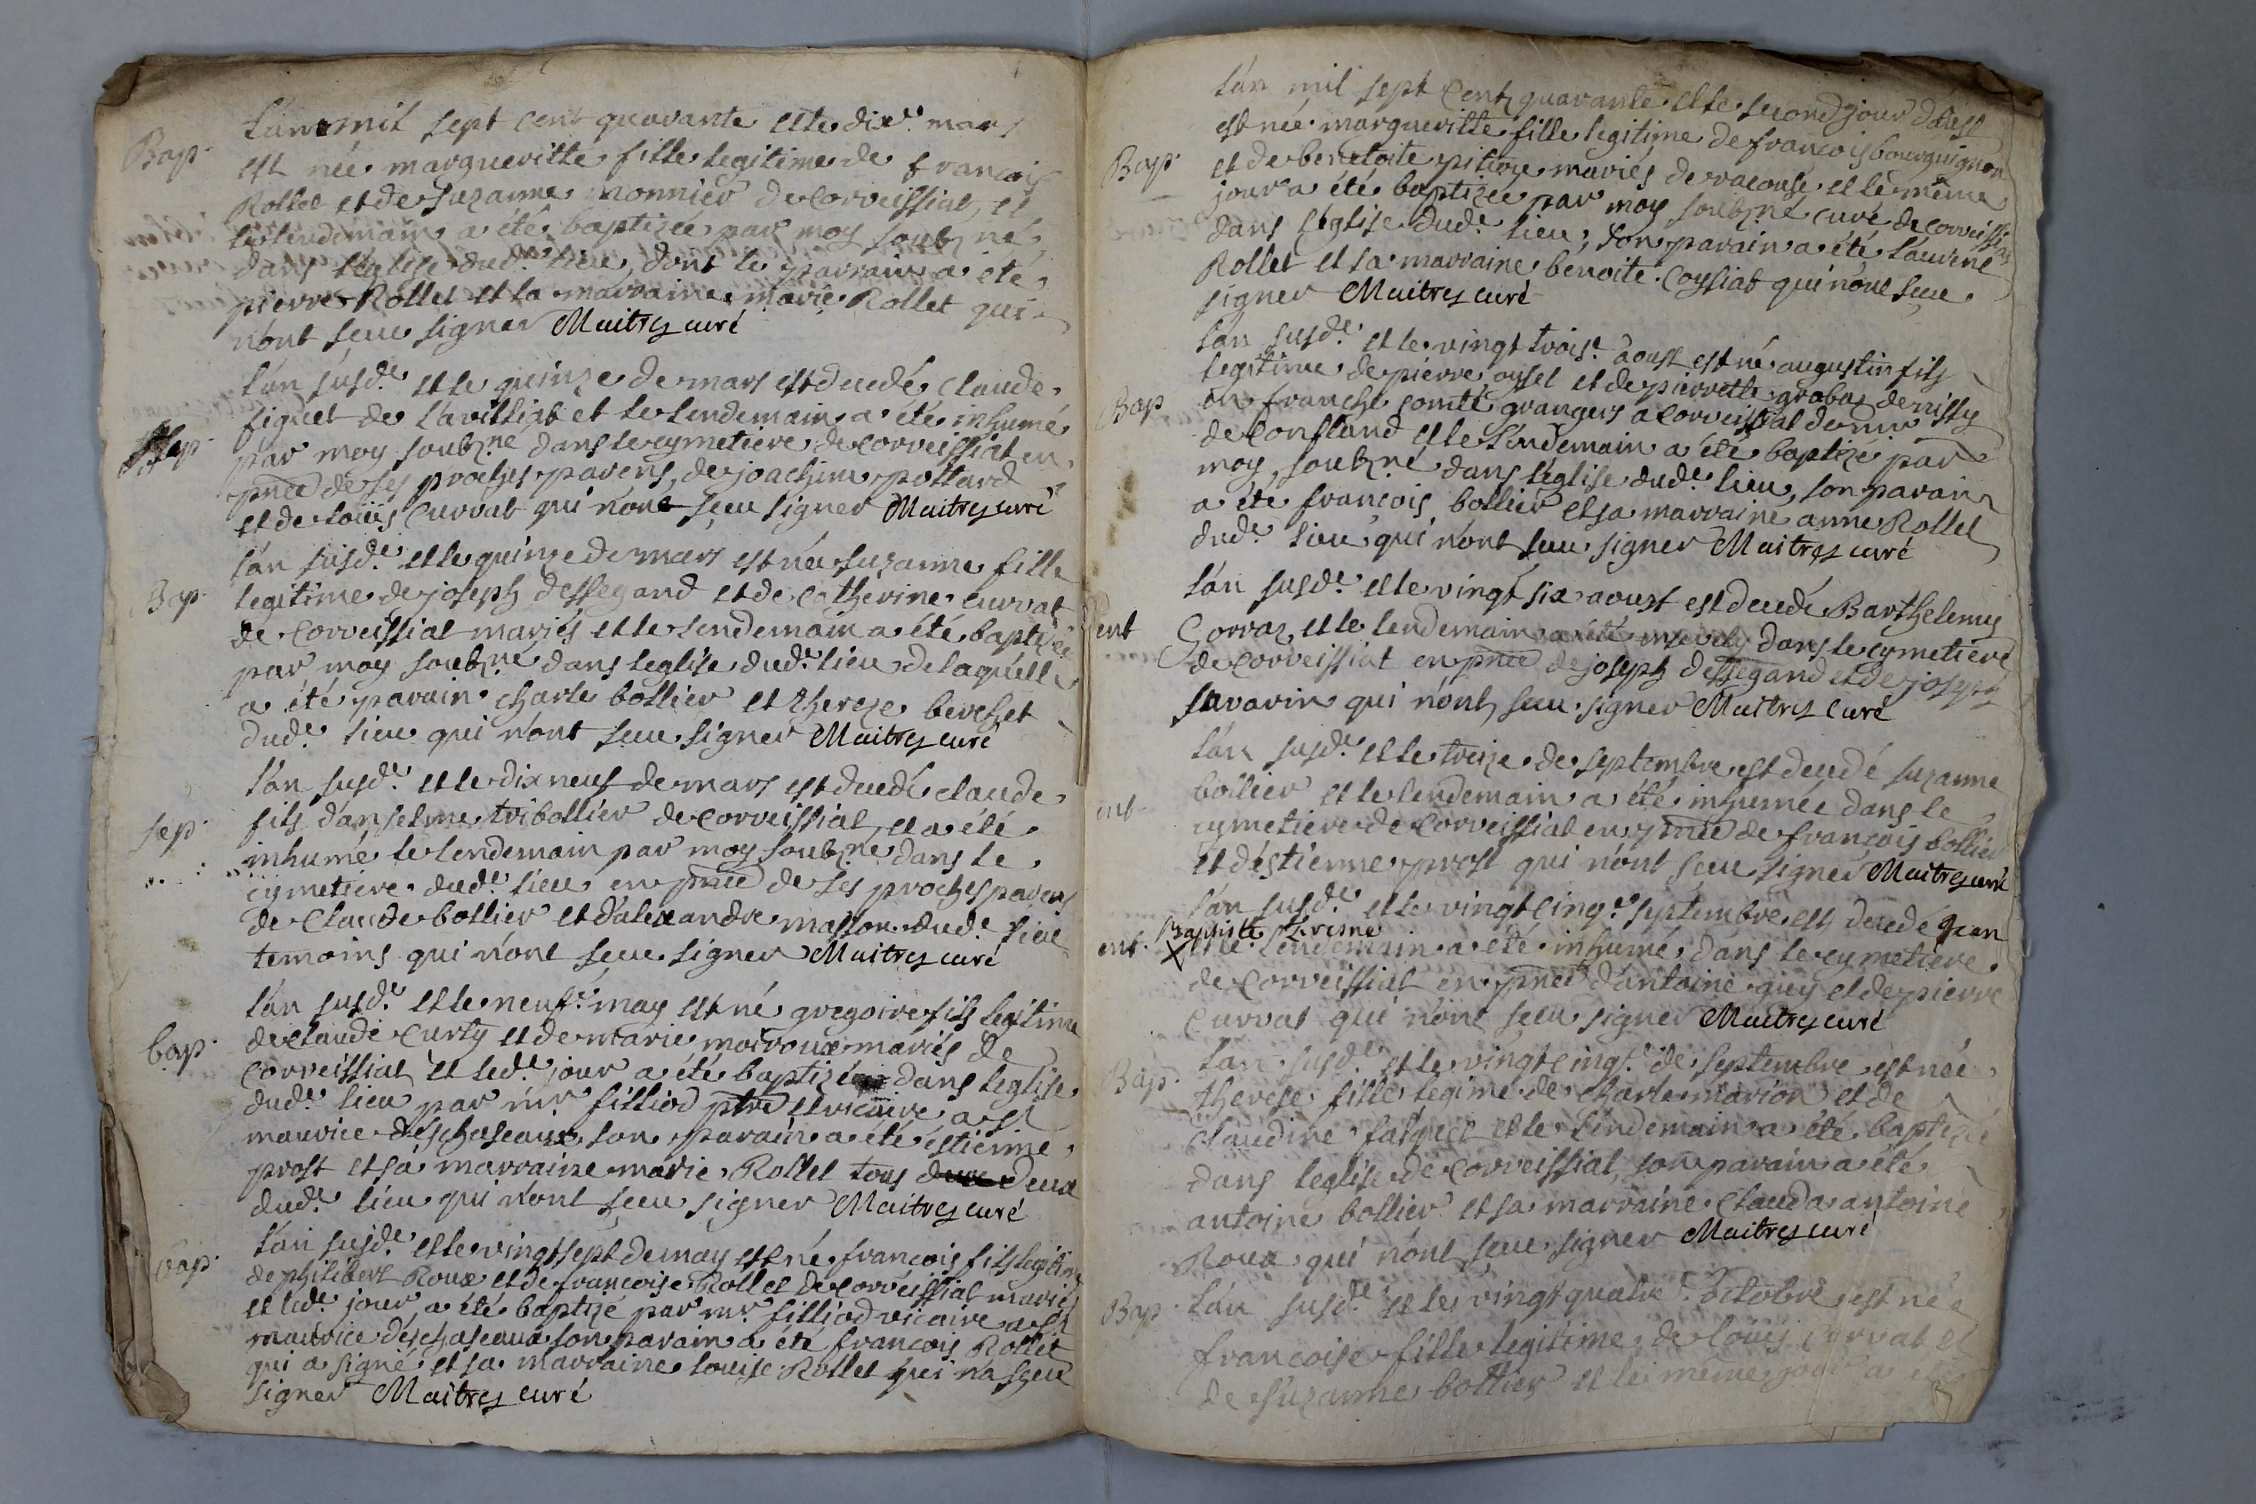 Bap. L'an mil sept cent quarante et le dixe. mars
est née margueritte fille legitime de francois
Rollet et de Suzanne monnier de Corveissiat, et
le lendemain a été baptizée par moy soubzné
dans l'eglise dude. lieu, dont le parrain a été
pierre Rollet et la marraine marie Rollet qui
n'ont sceu signer Maitrez curé
L'an susde. et le quinze de mars est decedé Claude
figuet de Lavilliat et le lendemain a été inhumé
Sep. par moy soubzné dans le cymetiere de Corveissiat en
pnce de ses proches parens, de joachim pottard
et de Loüis Curvat qui n'ont sceu signer Maitrez curé
L'an susde. et le quinze de mars est née suzanne fille
Bap. legitime de joseph dessegand et de Catherine Curvat
de Corveissiat mariés et le lendemain a été baptizée
par moy soubzné dans l'eglise dude. lieu de laquelle
a été parain charle bollier et therese berchet
dude. lieu qui n'ont sceu signer Maitrez curé
L'an susde. et le dix neuf de mars est decedé claude
Sep. fils d'anselme tribollier de Corveissiat, et a été
inhumé le lendemain par moy soubzné dans le
cymetiere dude. lieu en pnce de ses proches parens
de Claude bollier et d'alexandre masson dude. lieu
temoins qui n'ont sceu signer Maitrez curé
L'an susde. et le neufe. may est né gregoire fils legitime
bap. de claude Curty et de marie moiroux mariés de
Corveissiat et lede. jour a été baptizé dans l'eglise
dude. lieu par mr. filliod ptre et vicaire a st
maurice deschaseaux son parain a été estienne
prost et sa marraine marie Rollet tous deux
dude. lieu qui n'ont sceu signer Maitrez curé
bap. L'an susde. et le vingt sept de may est né francois fils legitime
de philibert Roux et de francoise Rollet de Corveissiat mariés
et lede. jour a été baptizé par mr. filliod vicaire a st
maurice deschaseaux son parain a été francois Rollet
qui a signé et sa marraine louise Rollet qui n'a sceu
signer Maitrez curé
L'an mil sept cent quarante et le second jour d'aoust
est née margueritte fille legitime de francois bourguignon
Bap. et de benetoite pitiou mariés de racouse et le même
jour a été baptizée par moy soubzné curé de Corveissiat
dans l'eglise dude. lieu, son parain a été Laurent
Rollet et sa marraine benoite Coysiat qui n'ont sceu
signer Maitrez curé
L'an susde. et le vingt troise. aoust est né augustin fils
legitime de pierre oysel et de pierrette grobas de nissy
Bap en franche comté grangers a Corveissiat de mr
de Confland et le lendemain a été baptizé par
moy, soubzné dans l'eglise dude. lieu, son parain
a été francois bollier et sa marraine anne Rollet
dude. lieu qui n'ont sceu signer Maitrez curé
L'an susde. et le vingt six aoust est decedé Barthelemy
ent Gorraz, et le lendemain a été ensevely dans le cymetiere
de Corveissiat en pnce de joseph dessegand et de joseph
savarin qui n'ont sceu signer Maitrez curé
L'an susde. et le treize de septembre est decedé suzanne
ent. bollier et le lendemain a été inhumée dans le
cymetiere de Corveissiat en pnce de françois bollier
et d'estienne prost qui n'ont sceu signer Maitrez curé
L'an susde. et le vingt cinqe. septembre est decedé jean
Baptiste
ent. et le lendemain a été inhumé dans le cymetiere
de Corveissiat en pnce d'antoine guy et de pierre
Curvat qui n'ont sceu signer Maitrez curé
L'an susde. et le vingt cinqe. de septembre est née
Bap. therese fille legime de charle marion et de
Claudine falquet et le lendemain a été baptizée
dans l'eglise de Corveissiat, son parain a été
antoine bollier et sa marraine Clauda antoine
Roux qui n'ont sceu signer Maitrez curé
Bap. L'an susde. et le vingt quatre. octobre est née
francoise fille legitime de Loüis Curvat et
de Suzanne bollier et le même jour a été